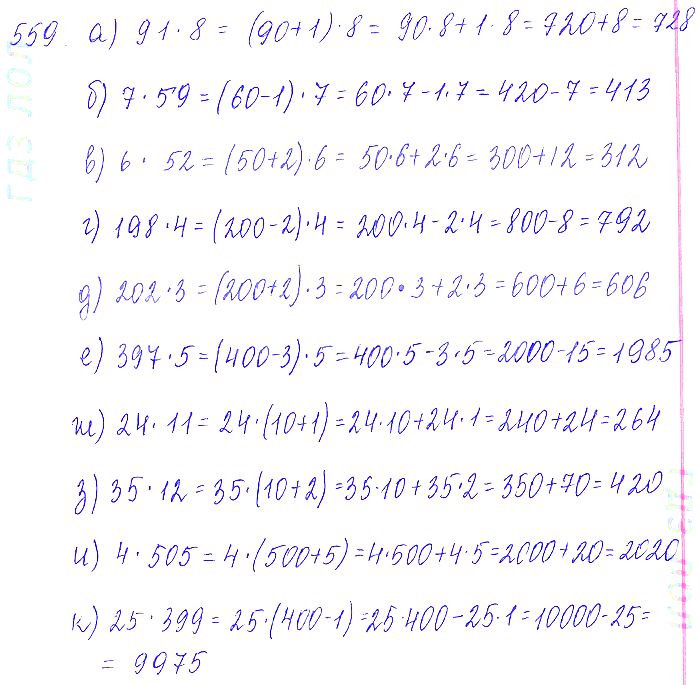 559. а) 91·8 = (90+1)·8 = 90·8+1·8=720+8=728
б) 7·59=(60-1)·7=60·7-1·7=420-7=413
в) 6·52=(50+2)·6=50·6+2·6=300+12=312
г) 198·4=(200-2)·4=200·4-2·4=800-8=792
д) 202·3=(200+2)·3=200·3+2·3=600+6=606
е) 397·5=(400-3)·5=400·5-3·5=2000-15=1985
ж) 24·11=24·(10+1)=24·10+24·1=240+24=264
з) 35·12=35·(10+2)=35·10+35·2=350+70=420
и) 4·505=4·(500+5)=4·500+4·5=2000+20=2020
к) 25·399=25·(400-1)=25·400-25·1=10000-25=
= 9975
гдз лол